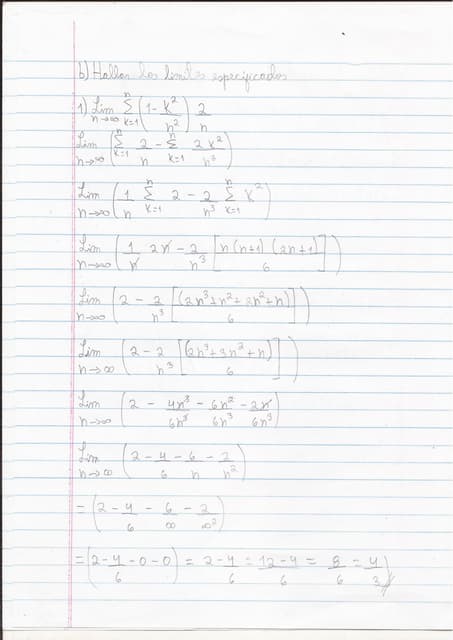 b) Hallar los limites especificados
1) Lim n→∞ n Σ k=1 (1 - k²/n²) 2/n
Lim n→∞ (n Σ k=1 2/n - n Σ k=1 2k²/n³)
Lim n→∞ (1/n n Σ k=1 2 - 2/n³ n Σ k=1 k²)
Lim n→∞ (1/n 2n - 2/n³ [n(n+1)(2n+1)/6])
Lim n→∞ (2 - 2/n³ [(2n³+n²+2n²+n)/6])
Lim n→∞ (2 - 2/n³ [(2n³+3n²+n)/6])
Lim n→∞ (2 - 4n³/6n³ - 6n²/6n³ - 2n/6n³)
Lim n→∞ (2 - 4/6 - 6/n - 2/n²)
= (2 - 4/6 - 6/∞ - 2/∞²)
= (2 - 4/6 - 0 - 0) = 2 - 4/6 = 12-4/6 = 8/6 = 4/3